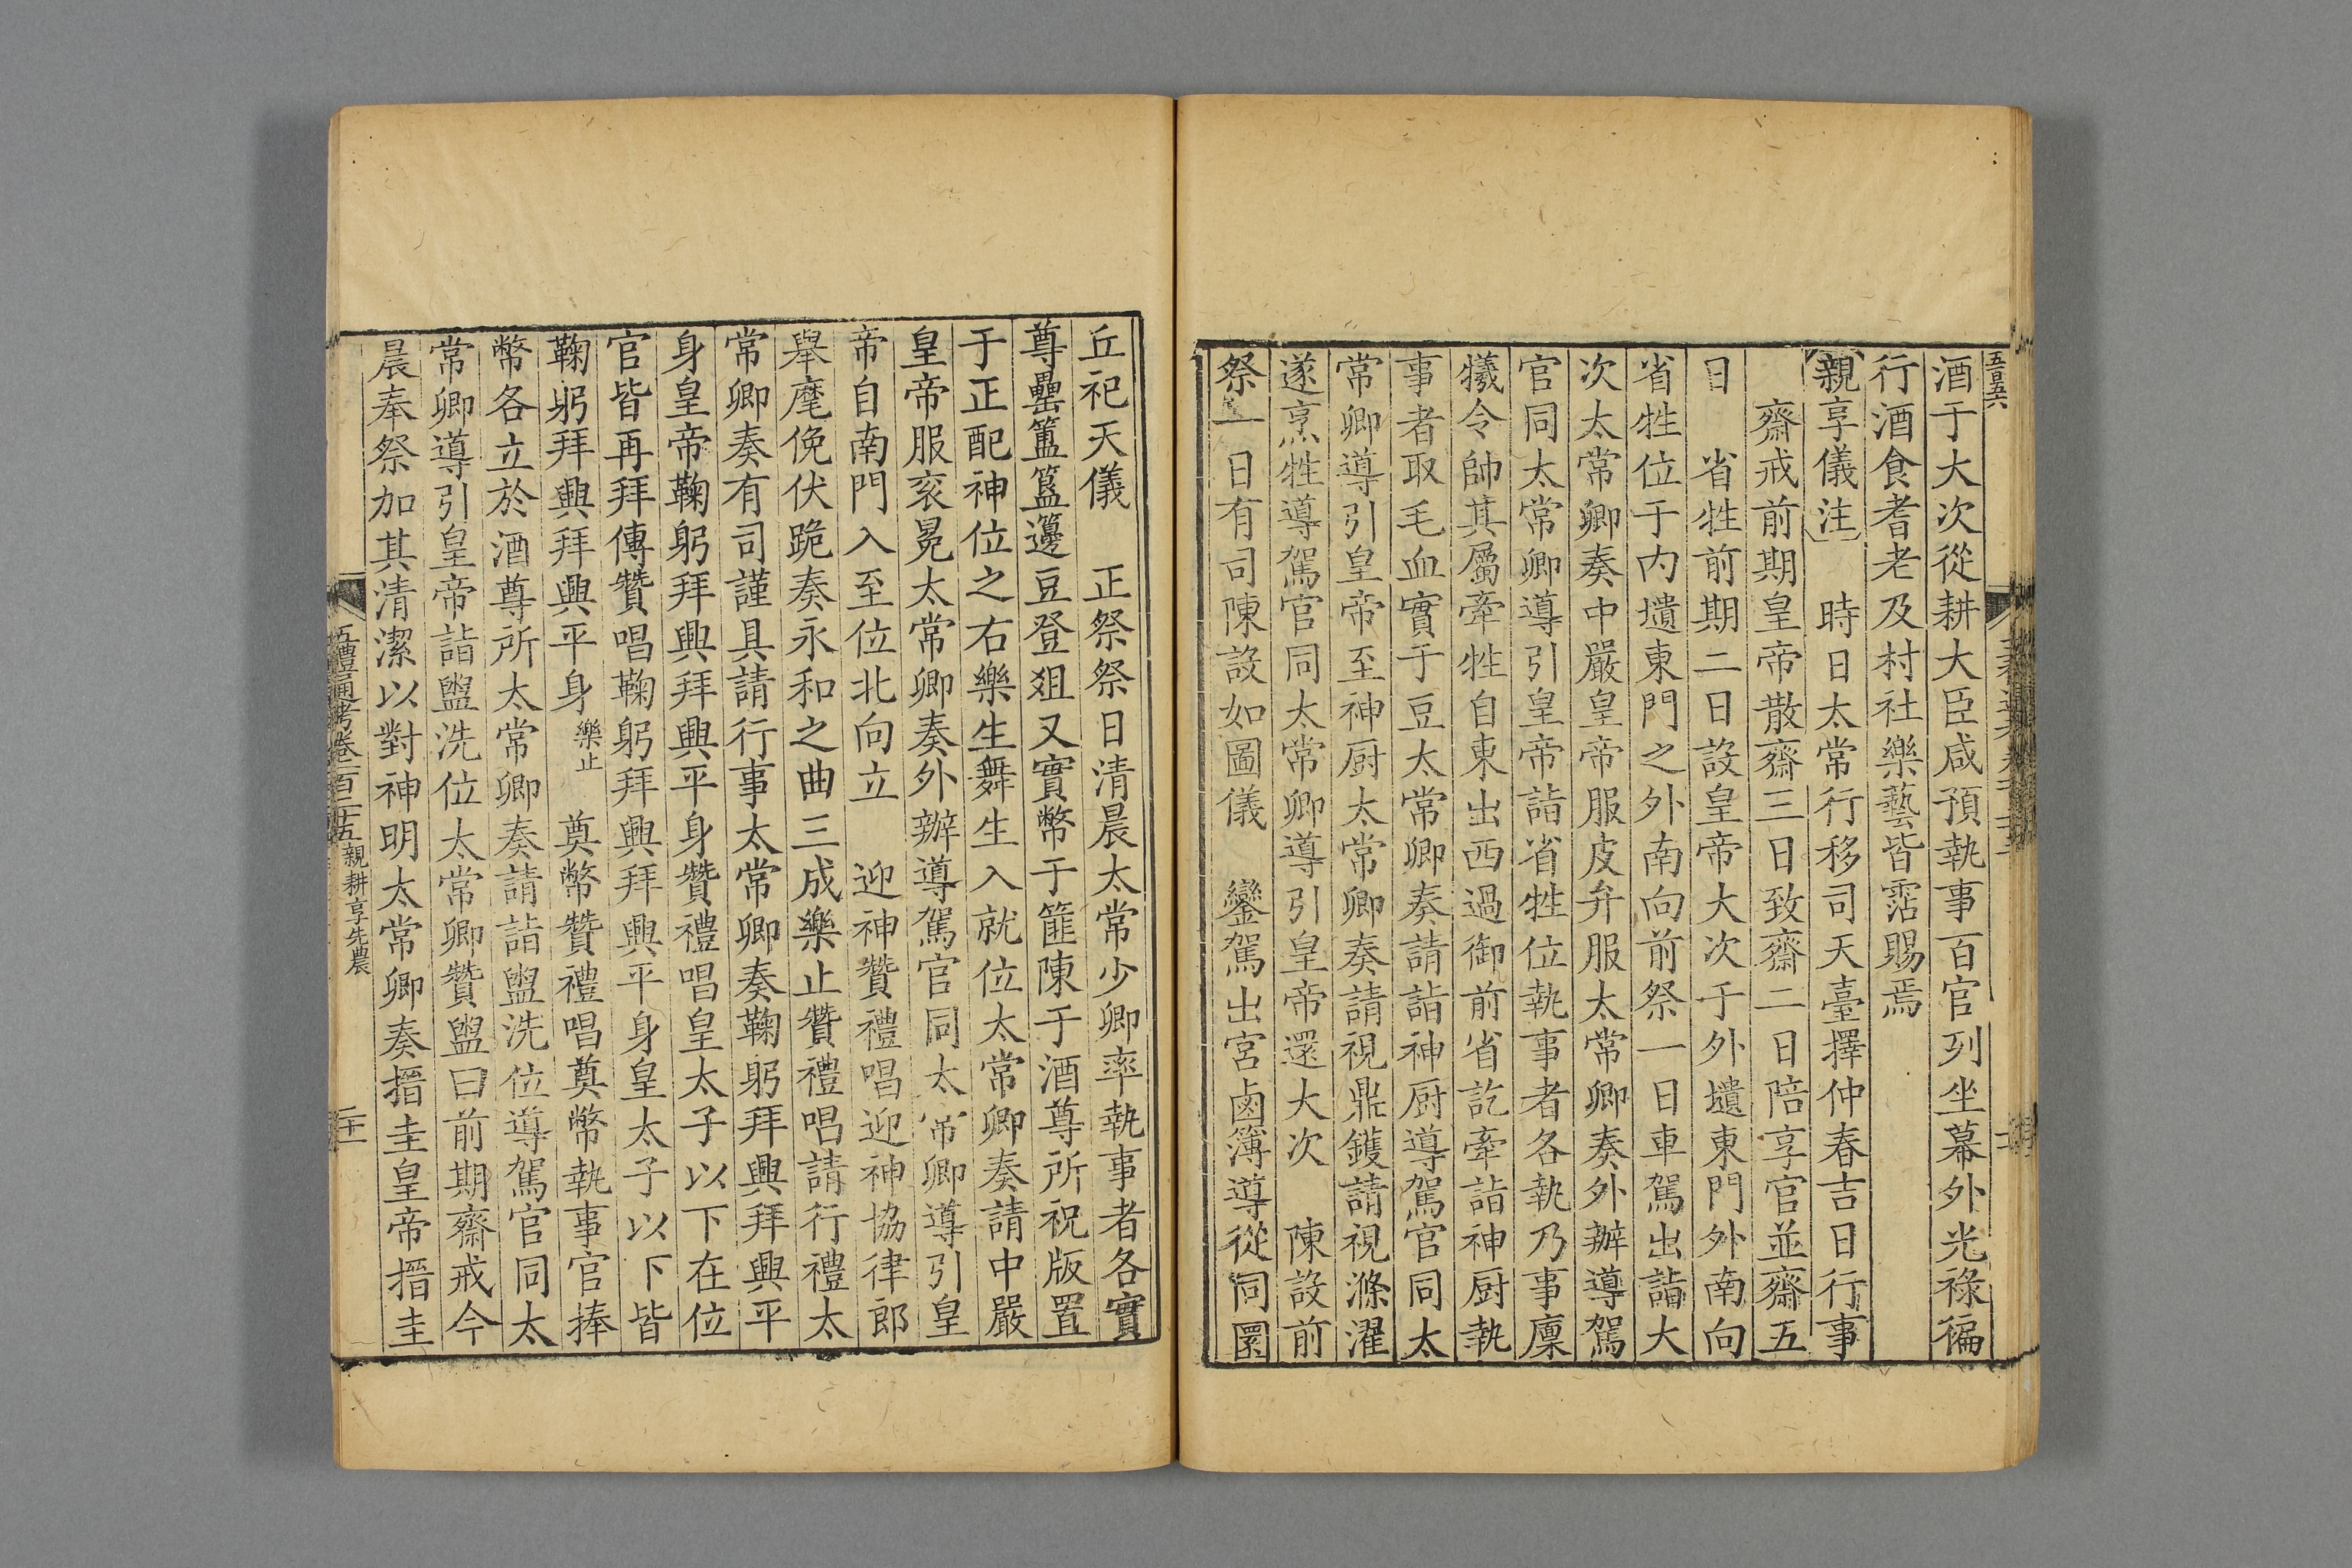 五百五六
酒于大次從耕大臣咸預執事百官列坐幕外光祿徧
行酒食耆老及村社樂藝皆霑賜焉
親享儀注 時日太常行移司天臺擇仲春吉日行事
齋戒前期皇帝散齋三日致齋二日陪享官並齋五
日 省牲前期二日設皇帝大次于外壝東門外南向
省牲位于内壝東門之外南向前祭一日車駕出詣大
次太常卿奏中嚴皇帝服皮弁服太常卿奏外辦導駕
官同太常卿導引皇帝詣省牲位執事者各執乃事廩
犧令帥其屬牽牲自東出西過御前省訖牽詣神厨執
事者取毛血實于豆太常卿奏請詣神厨導駕官同太
常卿導引皇帝至神厨太常卿奏請視鼎鑊請視滌濯
遂烹牲導駕官同太常卿導引皇帝還大次 陳設前
祭一日有司陳設如圖儀 鑾駕出宮鹵簿導從同圜
丘祀天儀 正祭祭日清晨太常少卿率執事者各實
尊罍簠簋籩豆登俎又實幣于篚陳于酒尊所祝版置
于正配神位之右樂生舞生入就位太常卿奏請中嚴
皇帝服衮冕太常卿奏外辦導駕官同太常卿導引皇
帝自南門入至位北向立 迎神贊禮唱迎神協律郎
舉麾俛伏跪奏永和之曲三成樂止贊禮唱請行禮太
常卿奏有司謹具請行事太常卿奏鞠躬拜興拜興平
身皇帝鞠躬拜興拜興平身贊禮唱皇太子以下在位
官皆再拜傳贊唱鞠躬拜興拜興平身皇太子以下皆
鞠躬拜興拜興平身樂止 奠幣贊禮唱奠幣執事官捧
幣各立於酒尊所太常卿奏請詣盥洗位導駕官同太
常卿導引皇帝詣盥洗位太常卿贊盥曰前期齋戒今
晨奉祭加其清潔以對神明太常卿奏搢圭皇帝搢圭
五禮通考卷一百二十五親耕享先農